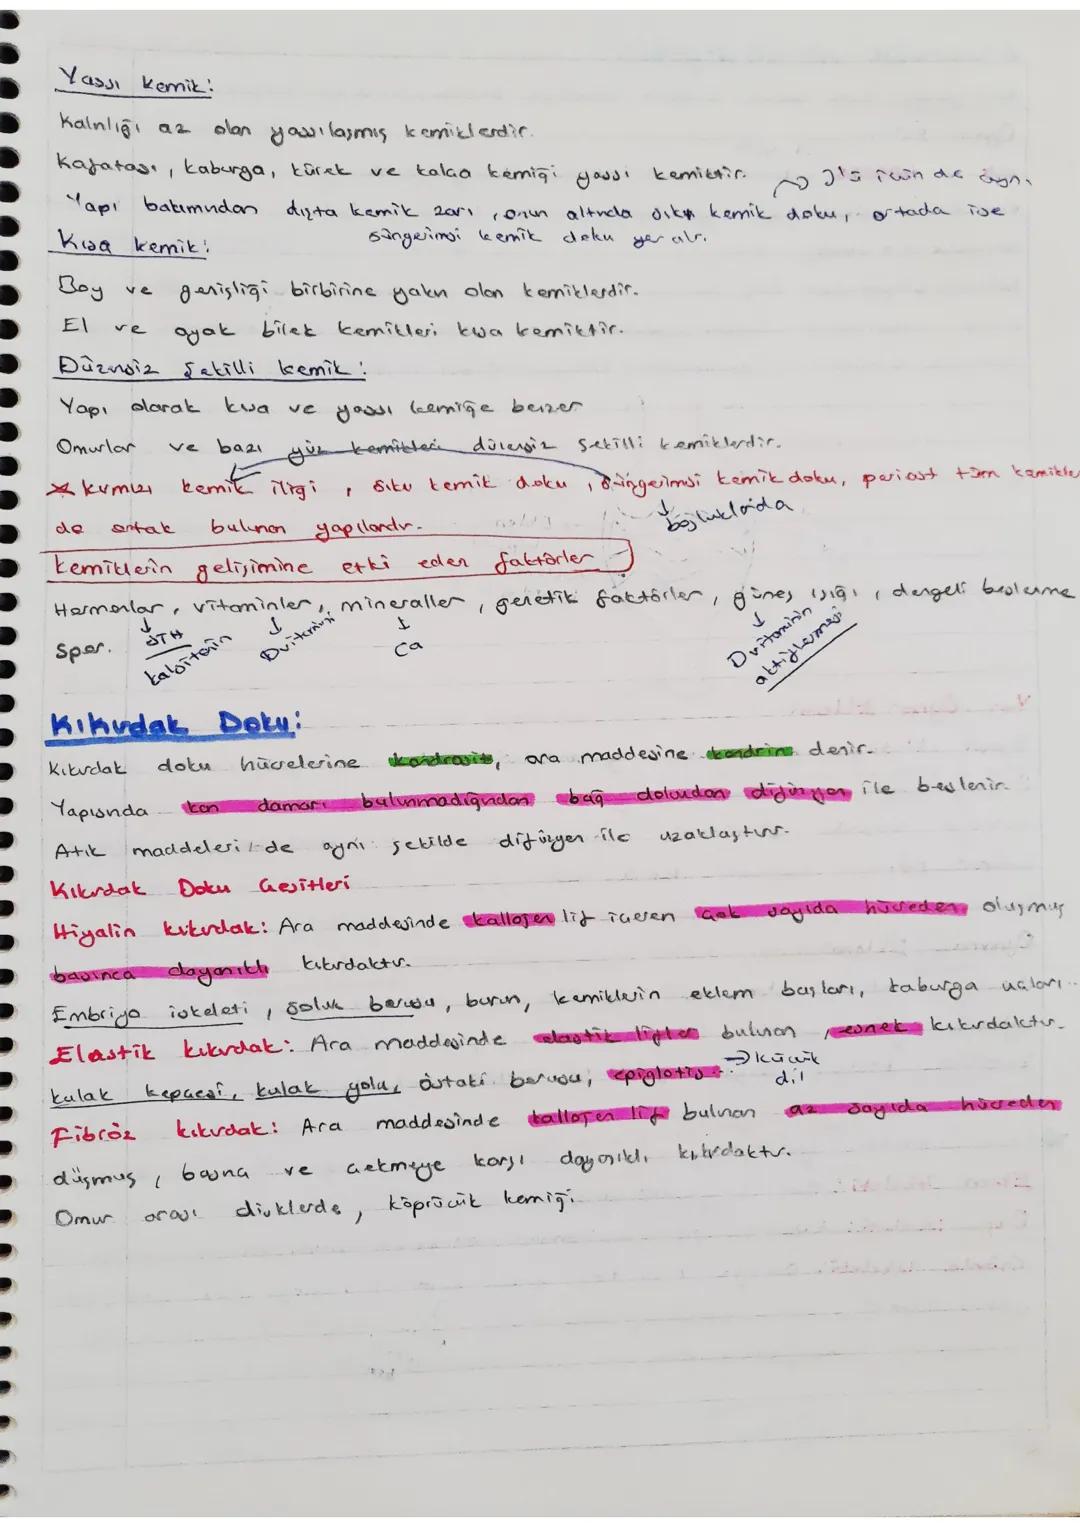 Yassı kemik:
Kalnlığı az olan yassılaşmış kemiklerdir.
Kafatası, kaburga, kürek ve kalça kemiği yassı kemiktir. → 3'ü için de aynı
Yapı bakımından dışta kemik zarı, onun altında sıkı kemik doku, ortada ise
süngerimsi kemik doku yer alır.
Kısa kemik:
Boy ve genişliği birbirine yakın olan kemiklerdir.
El ve ayak bilek kemikleri kısa kemiktir.
Düzensiz şekilli kemik:
Yapı olarak kısa ve yassı kemiğe benzer
Omurlar ve bazı yüz kemikleri düzensiz şekilli kemiklerdir.
* kırmızı kemik iliği, sıkı kemik doku, süngerimsi kemik doku, periost tüm kemikler
↓
boşluklarıda
de ortak bulunan yapılardır.
Kemiklerin gelişimine etki eden faktörler
Hormonlar, vitaminler, mineraller, genetik faktörler, güneş ışığı, dengeli beslenme
↓ STH kalsitonin
↓ D vitamini
↓ Ca
↓ D vitaminin aktifleşmesi
Spor.
Kıkırdak Doku:
Kıkırdak doku hücrelerine kondrosit, ara maddesine kondrin denir.
Yapısında kan damarı bulunmadığından bağ dokudan difüzyon ile beslenir.
Atık maddeleri de aynı şekilde difüzyon ile uzaklaştırır.
Kıkırdak Doku Çeşitleri
Hiyalin kıkırdak: Ara maddesinde kollojen lif içeren çok sayıda hücreden oluşmuş
basınca dayanıklı kıkırdaktır.
Embriyo iskeleti, soluk borusu, burun, kemiklerin eklem başları, kaburga uçları..
Elastik kıkırdak: Ara maddesinde elastik lifler bulunan, esnek kıkırdaktır.
Kulak kepçesi, kulak yolu, östaki borusu, epiglotis.. → küçük dil
Fibröz kıkırdak: Ara maddesinde kollojen lif bulunan az sayıda hücreden
düşmuş, basına ve çekmeye karşı dayanıklı kıkırdaktır.
Omur arası disklerde, köprücük kemiği